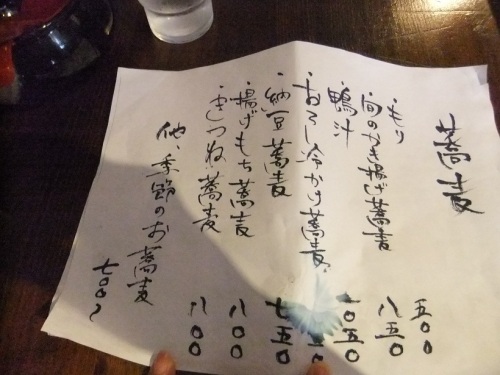 蕎麦
・もり 五〇〇
・旬のかき揚げ蕎麦 八五〇
・鴨汁 一〇五〇
・おろし冷かけ蕎麦
・納豆蕎麦 七五〇
・揚げもち蕎麦 八〇〇
・きつね蕎麦 八〇〇
他、季節のお蕎麦 七〇〇〜